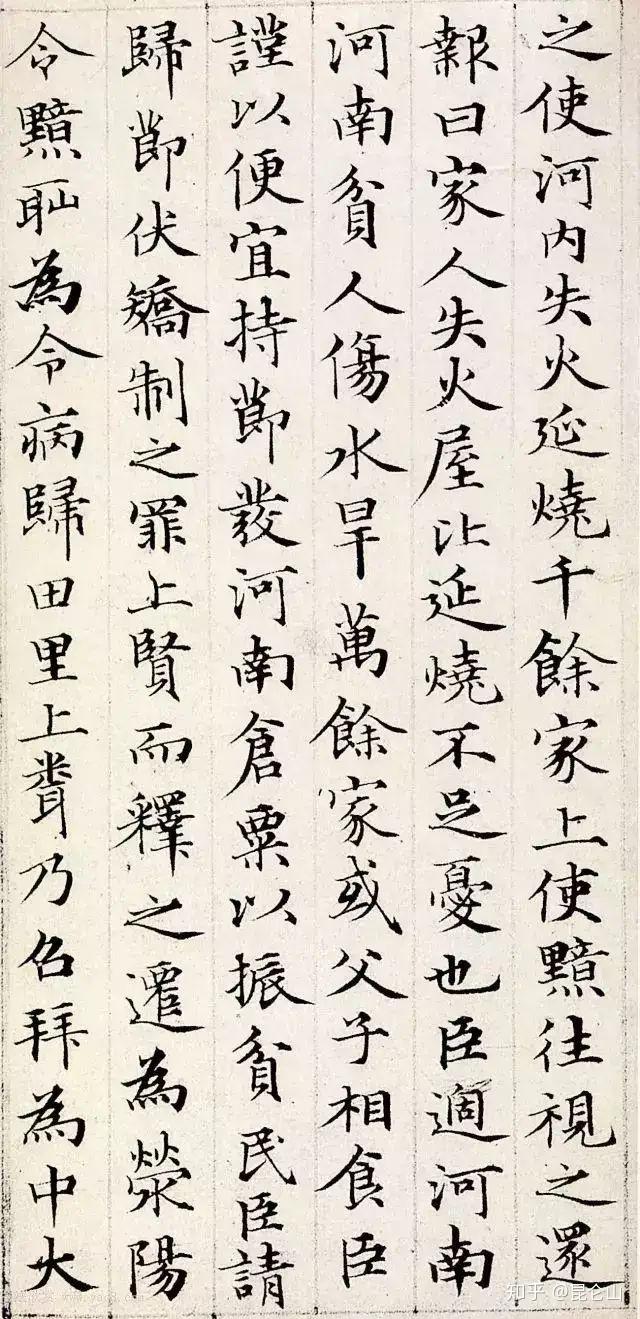 之使河内失火延燒千餘家上使黯往視之還
報曰家人失火屋比延燒不足憂也臣適河南
河南貧人傷水旱萬餘家或父子相食臣
謹以便宜持莭發河南倉粟以振貧民臣請
歸莭伏矯制之罪上賢而釋之遷為滎陽
令黯耻為令病歸田里上聞乃召拜為中大
知乎 @昆仑山